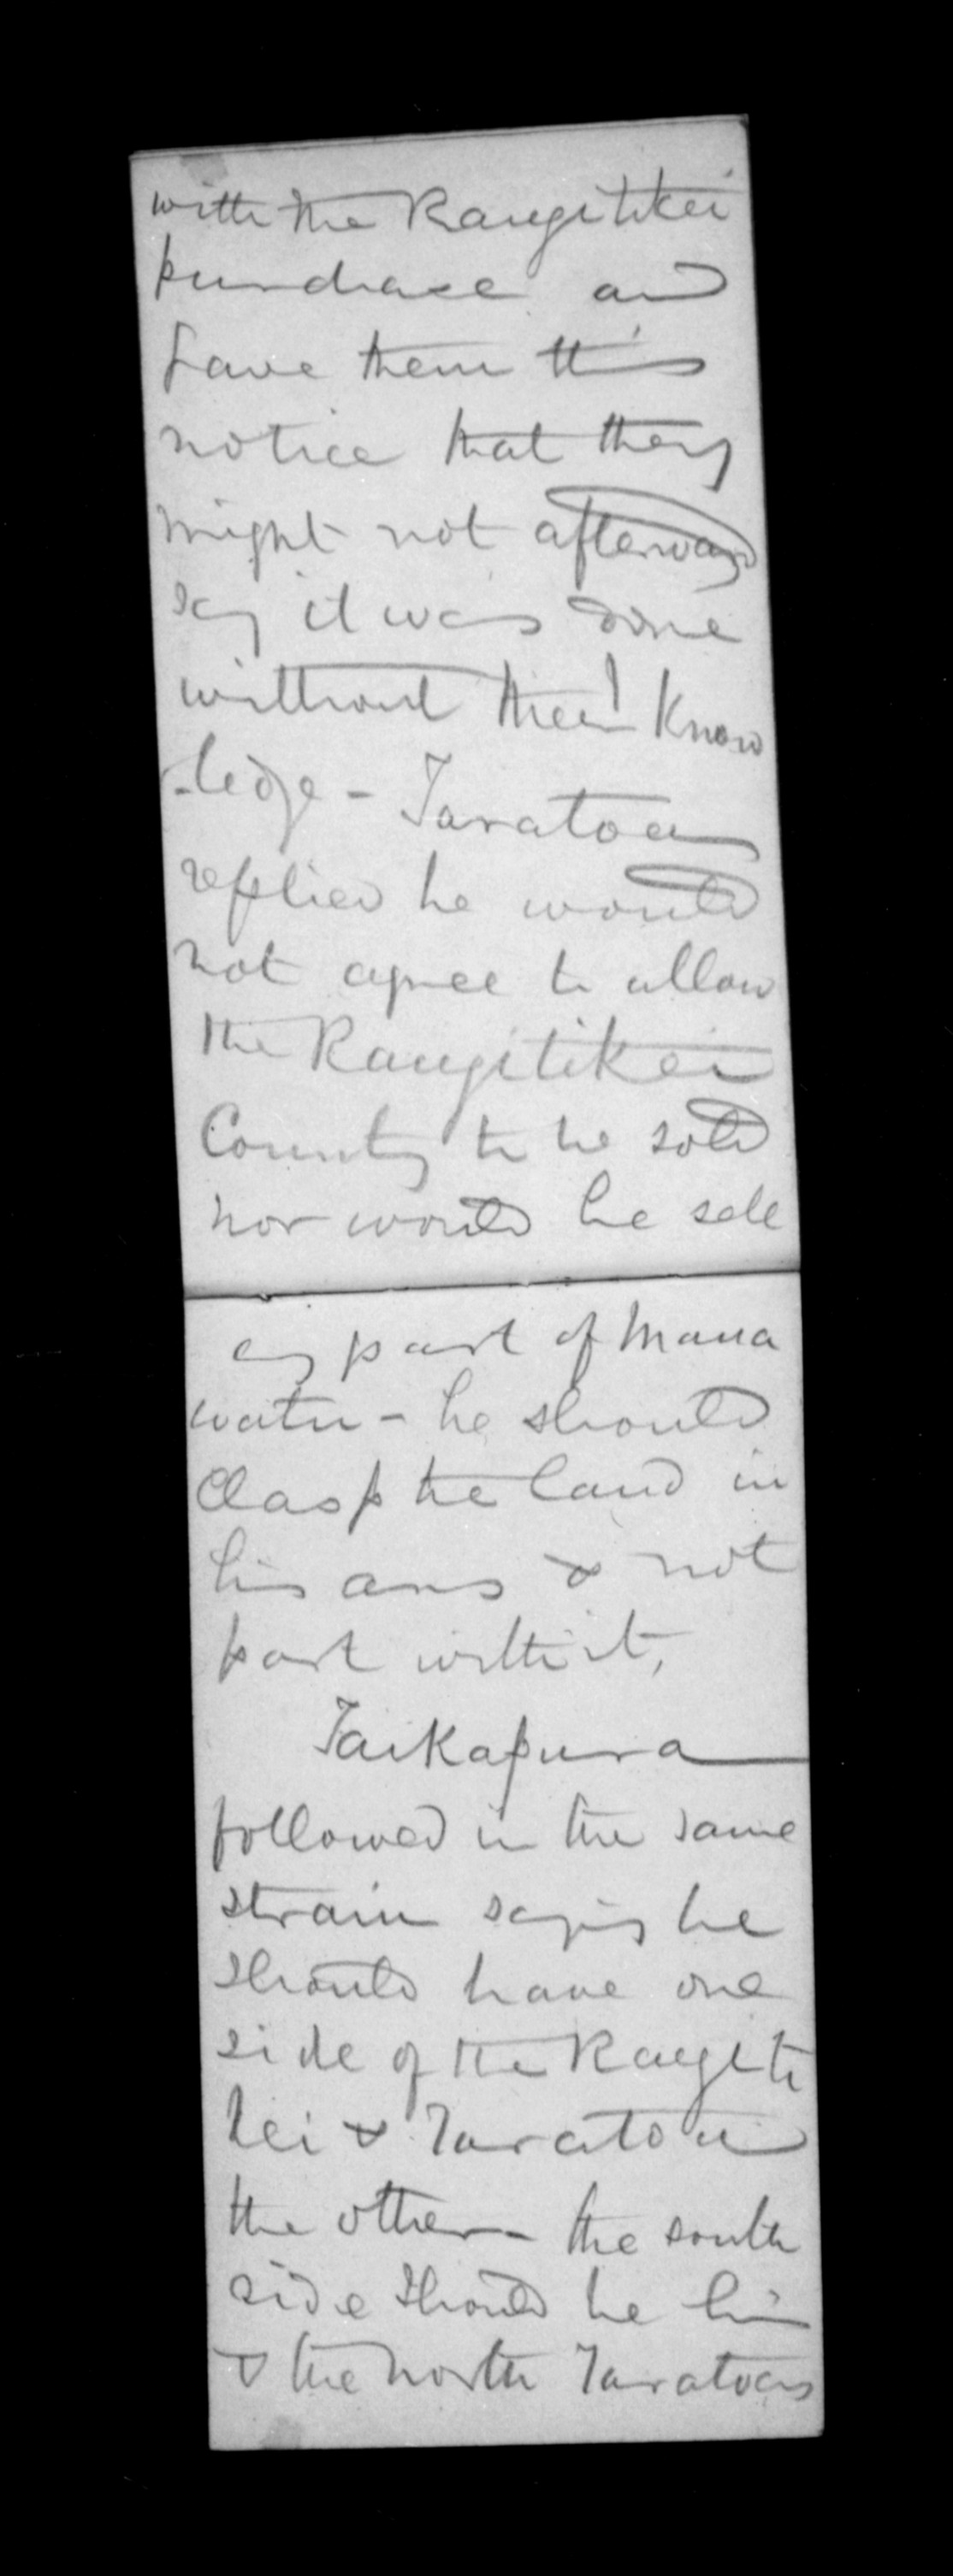 with the Rangitikei
purchase and
gave them this
notice that they
might not afterwards
say it was done
without their know
-ledge - Taratoa
replied he would
not agree to allow
the Rangitikei
County to be sold
nor would he sell
any part of Mana
watu - he should
clasp the land in
his arms & not
part with it,
Taikapura
followed in the same
strain saying he
should have one
side of the Rangiti
kei & Taratoa
the other - the south
side should be his
& the north Taratoas